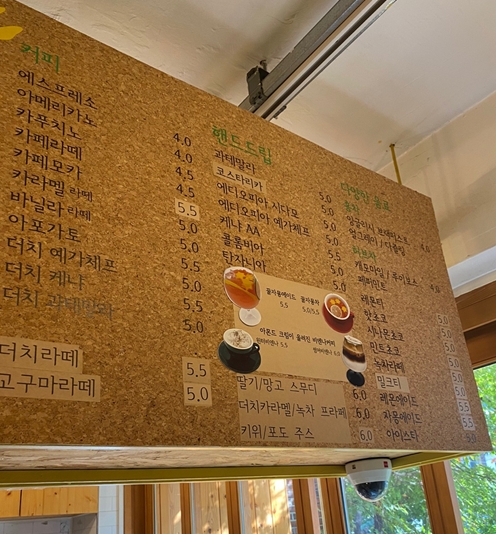 커피
에스프레소
아메리카노 4.0
카푸치노 4.0
카페라떼 4.5
카페모카 4.5
카라멜 라떼 5.5
바닐라 라떼 5.0
아포가토 5.0
더치 예가체프 5.5
더치 케냐 5.0
더치 과테말라 5.0
더치라떼 5.5
고구마라떼 5.0
핸드드립
과테말라 5.0
코스타리카 5.0
에디오피아 시다모 5.0
에디오피아 예가체프 5.0
케냐 AA 5.0
콜롬비아
탄자니아
꿀자몽에이드 5.5
꿀자몽차 5.0/5.5
아몬드 크림이 올려진 비엔나커피
5.5
6.0
딸기/망고 스무디 6.0
더치카라멜/녹차 프라페 6.0
키위/포도 주스 6.0
홍차
4.0
얼그레이 / 다즐링
허브차
캐모마일 / 루이보스 4.0
페퍼민트
레몬티
핫초코
시나몬초코
민트초코
녹차라떼
밀크티
레몬에이드
자몽에이드
아이스티